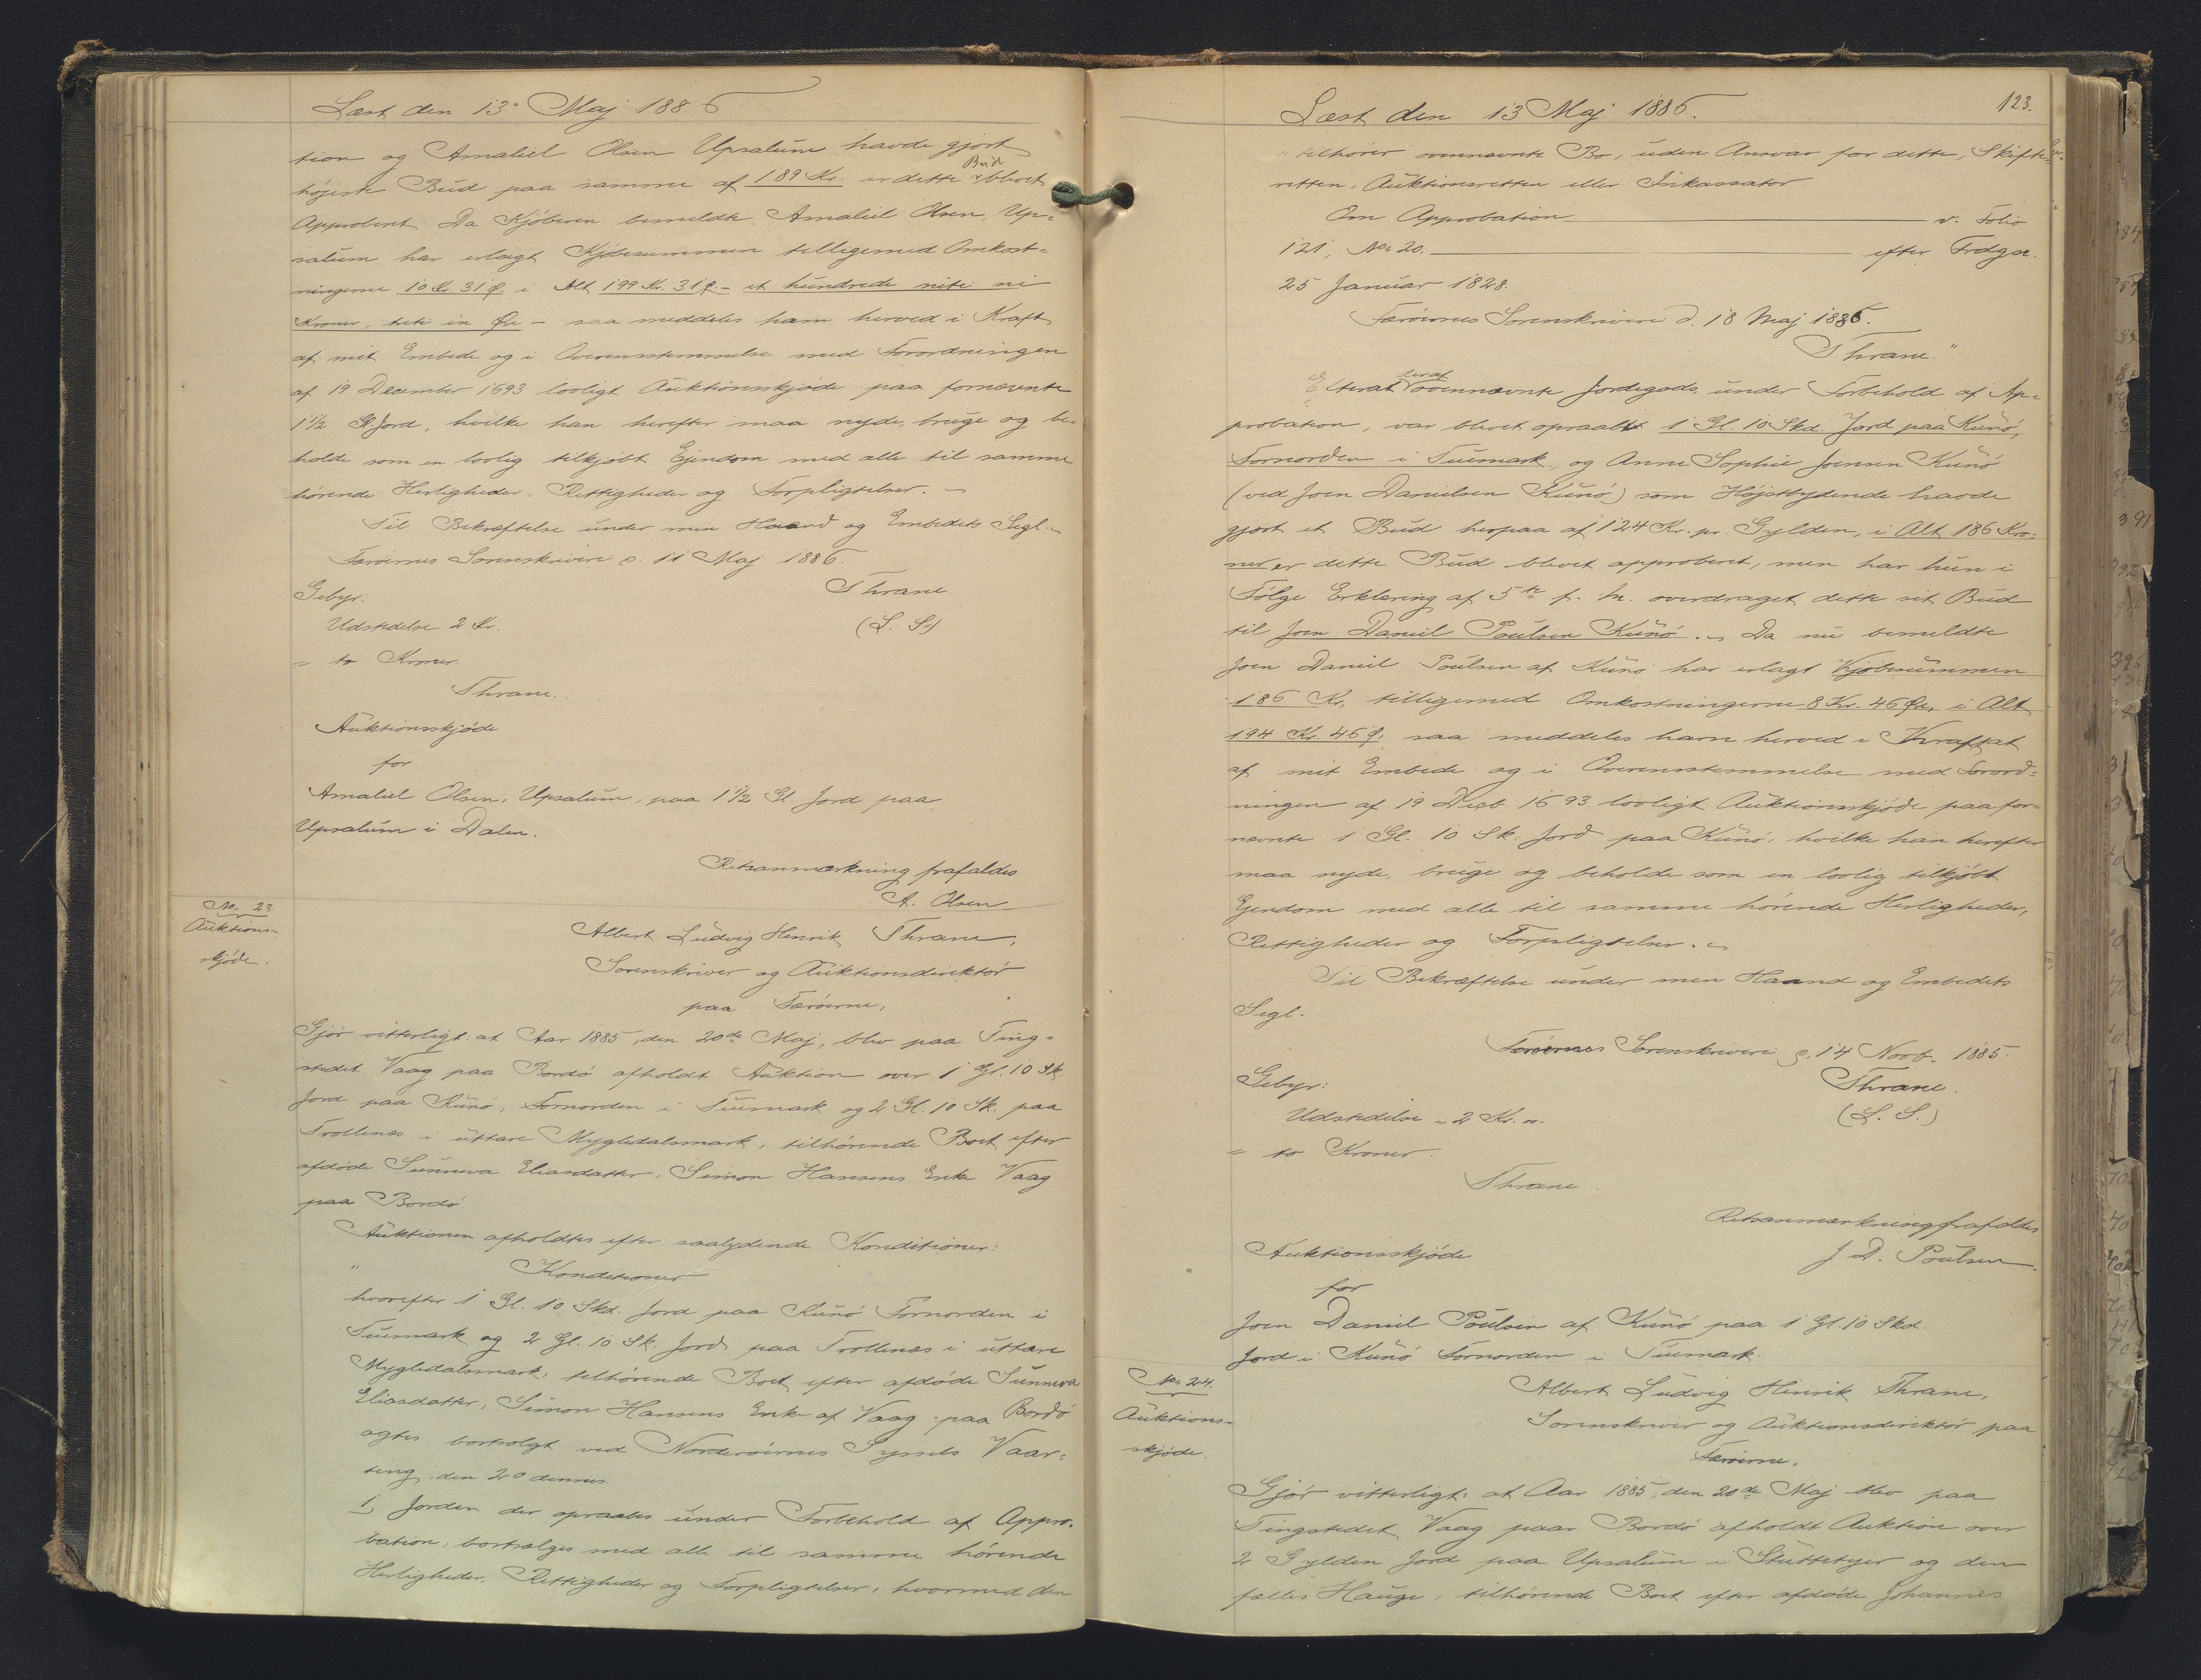 Læst den 13 Maj 1886
tion og Amaliel Olsen Upsalum havde gjort
højeste Bud paa samme af 189 Kr. er dette Bud blevet
Approberet. Da Kjøberen bemeldte Amaliel Olsen, Up=
salum har erlagt Kjøbesummen tilligemed Omkost=
ningerne 10 Kr. 31 Ø. i Alt 199 Kr. 31 Ø. - et hundrede niti ni
Kroner, treti en Øre - saa meddeles ham herved i Kraft
af mit Embede og i Overensstemmelse med Forordningen
af 19 December 1693 lovligt Auktionsskjøde paa fornævnte
1 1/2 Gl. Jord, hvilke han herefter maa nyde, bruge og be=
holde som en lovlig tilkjøbt Ejendom med alle til samme
hørende Herligheder, Rettigheder og Forpligtelser. -
Til Bekræftelse under min Haand og Embedets Segl. -
Færøernes Sorenskriveri d. 11 Maj 1886.
Gebyr: Thrane
Udstedelse 2 Kr. (L. S.)
= to Kroner.
Thrane.
Auktionsskjøde
for
Amaliel Olsen, Upsalum, paa 1 1/2 Gl Jord paa
Upsalum i Dalen.
Retsanmærkning frafaldes
A. Olsen
No. 23
Auktions-
skjøde.
Albert Ludvig Henrik Thrane,
Sorenskriver og Auktionsdirektør
paa Færøerne,
Gjør vitterligt: at Aar 1885, den 20de Maj, blev paa Ting=
stedet Vaag paa Bordø afholdt Auktion over 1 Gl. 10 Sk.
Jord paa Kunø, Fornorden i Tuemark og 2 Gl. 10 Sk. paa
Trollenæs i uttare Mygledalsmark, tilhørende Boet efter
afdøde Sunneva Eliasdatter, Simon Hansens Enke Vaag
paa Bordø.
Auktionen afholdtes efter saalydende Konditioner:
" Konditioner
hvorefter 1 Gl. 10 Skd. Jord paa Kunø Fornorden i
Tuemark og 2 Gl. 10 Sk. Jord paa Trollenæs i uttare
Mygledalsmark, tilhørende Boet efter afdøde Sunneva
Eliasdatter, Simon Hansens Enke af Vaag paa Bordø
agtes bortsolgt ved Norderøernes Syssels Vaar=
ting den 20 dennes.
1, Jorden der opraabes under Forbehold af Appro=
bation, bortsælges med alle til samme hørende
Herligheder, Rettigheder og Forpligtelser, hvormed den
Læst den 13 Maj 1886. 123.
tilhører ovennævnte Bo, uden Ansvar for dette, Skifte=
retten, Auktionsretten eller Inkassator
Om Approbation v. Folio
121, No. 20. efter Frdgn.
25 Januar 1828.
Færøernes Sorenskriveri d. 18 Maj 1886.
Thrane."
Efterat deraf ovennævnte Jordegods, under Forbehold af Ap=
probation, var blevet opraabt 1 Gl. 10 Skd. Jord paa Kunø,
Fornorden i Tuemark, og Anne Sophie Joensen Kunø
(ved Joen Danielsen Kunø) som Højstbydende havde
gjort et Bud herpaa af 124 Kr. pr. Gylden, i Alt 186 Kro=
ner er dette Bud blevet approberet, men har hun i
Følge Erklæring af 5te f. M. overdraget dette sit Bud
til Joen Daniel Poulsen Kunø. - Da nu bemeldte
Joen Daniel Poulsen af Kunø har erlagt Kjøbesummen
186 Kr. tilligemed Omkostningerne 8 Kr. 46 Øre, i Alt
194 Kr. 46 Ø. saa meddeles ham herved i Kraft at
af mit Embede og i Overensstemmelse med Forord=
ningen af 19 Decb 1693 lovligt Auktionsskjøde paa for=
nævnte 1 Gl. 10 Sk. Jord paa Kunø, hvilke han herefter
maa nyde, bruge og beholde som en lovlig tilkjøbt
Ejendom med alle til samme hørende Herligheder,
Rettigheder og Forpligtelser. -
Til Bekræftelse under min Haand og Embedets
Segl.
Færøernes Sorenskriveri d. 14 Novb. 1885.
Gebyr: Thrane.
Udstedelse - 2 Kr. (L. S.)
= to Kroner.
Thrane.
Retsanmærkning frafaldes
Auktionsskjøde J D. Poulsen.
for
Joen Daniel Poulsen af Kunø paa 1 Gl. 10 Skd.
Jord i Kunø Fornorden i Tuemark.
No. 24.
Auktions=
skjøde.
Albert Ludvig Henrik Thrane,
Sorenskriver og Auktionsdirektør paa
Færøerne,
Gjør vitterligt: at Aar 1885, den 20de Maj blev paa
Tingstedet Vaag paa Bordø afholdt Auktion over
2 Gylden Jord paa Upsalum i Stuttetejer og den
fælles Hauge, tilhørende Boet efter afdøde Johannes